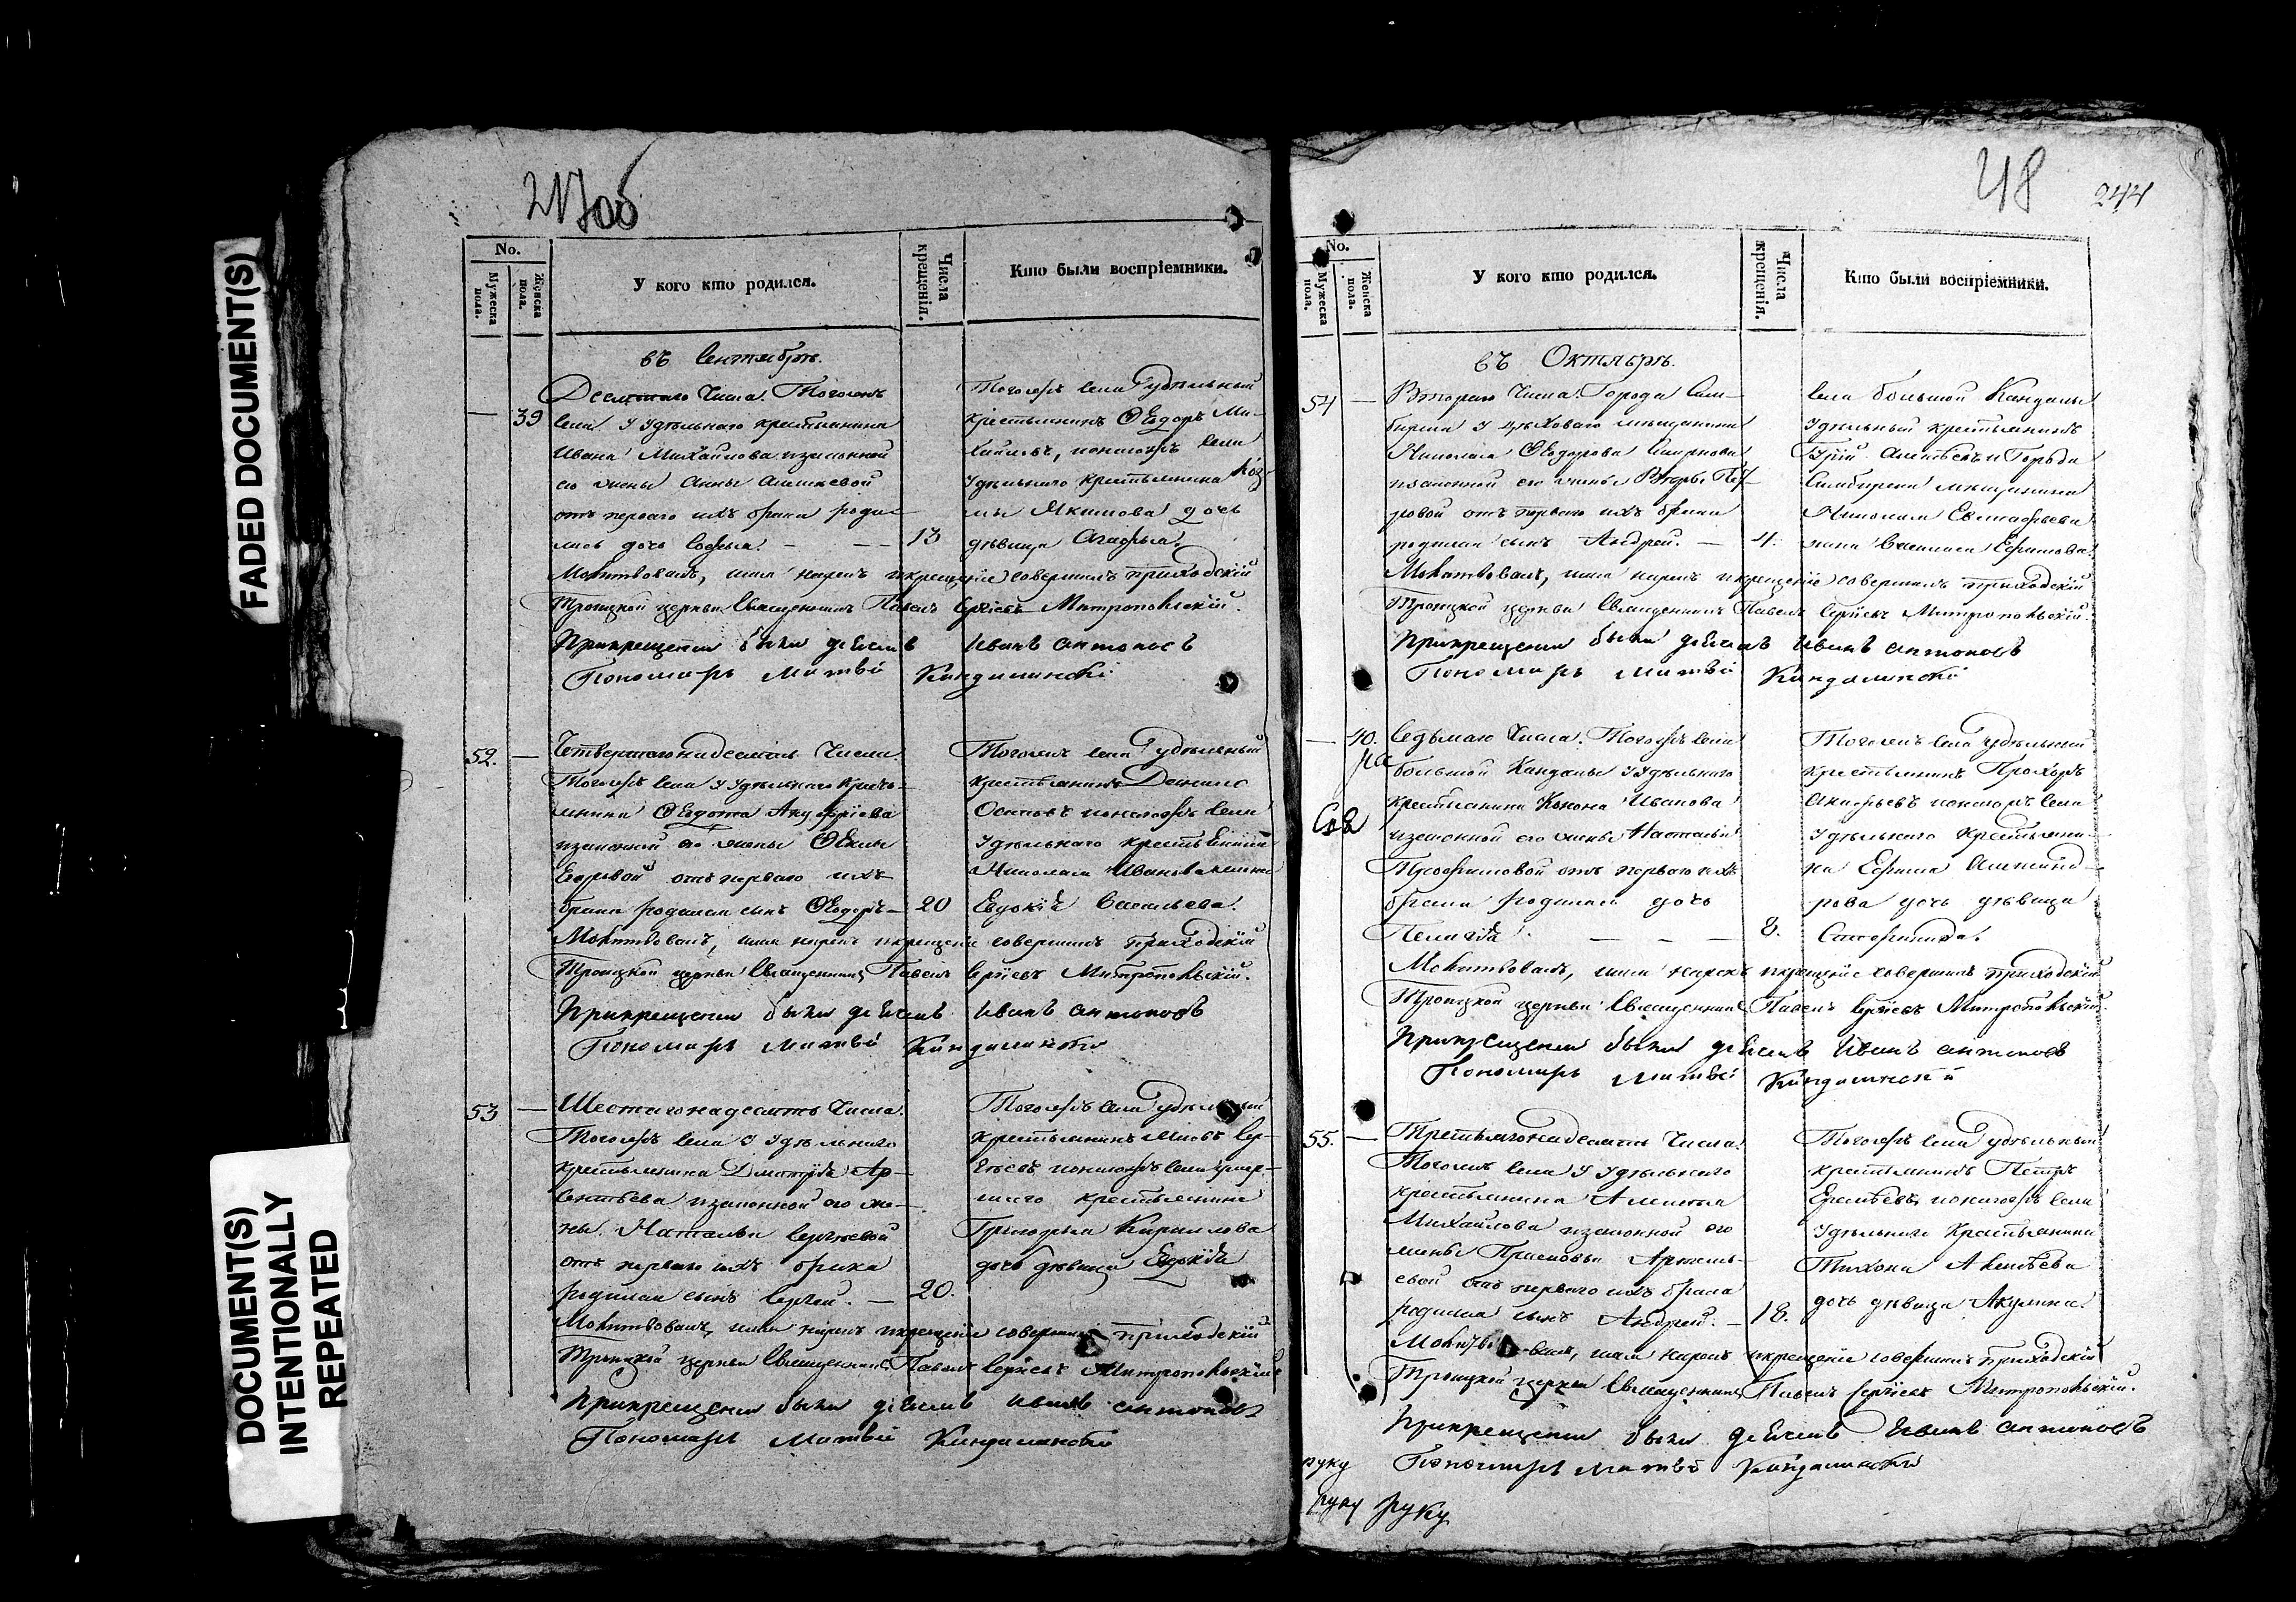 FADED DOCUMENT(S)
DOCUMENT(S)
INTENTIONALLY
REPEATED
217об
No.
Мужеска пола.
Женска пола.
У кого кто родился.
Числа крещенія.
Кто были воспріемники.
въ Сентябрѣ.
39
Десятаго Числа. Тогожъ
села у удѣльнаго крестьянина
Ивана Михайлова изаконной
его жены Анны Алексѣевой
отъ перваго ихъ брака роди-
лась дочь Софья. 13
Тогожъ села удѣльный
крестьянинъ Ѳеодоръ Ми-
хайловъ, итогожъ села
удѣльнаго крестьянина Коз-
мы Якимова дочь
дѣвица Агафья.
Молитвовалъ, имя нарекъ икрещеніе совершилъ приходскій
Троицкой церкви Священникъ Павелъ Сергіевъ Митропольскій.
Прикрещеніи были дьячекъ Иванъ Антоновъ
Пономарь Матвей Кандалинскій
52.
Четвертагонадесять Числа.
Тогожъ села у удѣльнаго кресть-
янина Ѳедота
изаконной его жены Ѳеклы
Егоровой отъ перваго ихъ
брака родился сынъ Ѳеодоръ 20
Тогожъ села удѣльный
крестьянинъ Данило
Осиповъ итогожъ села
удѣльнаго крестьянина
Николая Иванова жена
Евдокія Васильева.
Молитвовалъ, имя нарекъ икрещеніе совершилъ приходскій
Троицкой церкви Священникъ Павелъ Сергіевъ Митропольскій.
Прикрещеніи были дьячекъ Иванъ Антоновъ
Пономарь Матвей Кандалинскій
53
Шестагонадесять Числа.
Тогожъ села у удѣльнаго
крестьянина Дмитрія Ар-
сентьева изаконной его же-
ны Натальи Сергѣевой
отъ перваго ихъ брака
родился сынъ Сергей. 20.
Тогожъ села удѣльный
крестьянинъ Сер-
гѣевъ итогожъ села удѣль-
наго крестьянина
Григорья Кирилова
дочь дѣвица Евдокія
Молитвовалъ, имя нарекъ икрещеніе совершилъ приходскій
Троицкой церкви Священникъ Павелъ Сергіевъ Митропольскій
Прикрещеніи были дьячекъ Иванъ Антоновъ
Пономарь Матвей Кандалинскій
48
244
No.
Мужеска пола.
Женска пола.
У кого кто родился.
Числа крещенія.
Кто были воспріемники.
въ Октябрѣ.
54
Втораго Числа. Города Сим-
бирска у цѣховаго мещанина
Николая Ѳеодорова
изаконной его жены Пет-
ровой отъ перваго ихъ брака
родился сынъ Андрей. 4.
Села большой Кандалы
Удѣльный крестьянинъ
Алексѣевъ и Города
Симбирска мещанина
Николая Евстафьева
жена Василиса Ефимова.
Молитвовалъ, имя нарекъ икрещеніе совершилъ приходскій
Троицкой церкви Священникъ Павелъ Сергіевъ Митропольскій.
Прикрещеніи были дьячекъ Иванъ Антоновъ
Пономарь Матвей Кандалинскій
40.
Седьмаго Числа. Тогожъ села
большой Кандалы у удѣльнаго
крестьянина Конона Иванова
изаконной его жены Натальи
Трофимовой отъ перваго ихъ
брака родилась дочь
Пелагія. 8.
Тогожъ села удѣльный
крестьянинъ Прохоръ
итогожъ села
удѣльнаго крестьяни-
на Ефима Александ-
рова дочь дѣвица
Степанида.
Молитвовалъ, имя нарекъ икрещеніе совершилъ приходскій
Троицкой церкви Священникъ Павелъ Сергіевъ Митропольскій.
Прикрещеніи были дьячекъ Иванъ Антоновъ
Пономарь Матвей Кандалинскій
55.
Третьягонадесять Числа.
Тогожъ села у удѣльнаго
крестьянина
Михайлова изаконной его
жены Прасковьи Артемь-
евой отъ перваго ихъ брака
родился сынъ Андрей. 18.
Тогожъ села удѣльный
крестьянинъ Петръ
итогожъ села
удѣльнаго крестьянина
Тихона
дочь дѣвица Акулина.
Молитвовалъ, имя нарекъ икрещеніе совершилъ приходскій
Троицкой церкви Священникъ Павелъ Сергіевъ Митропольскій.
Прикрещеніи были дьячекъ Иванъ Антоновъ
руку Пономарь Матвей Кандалинскій
руку руку